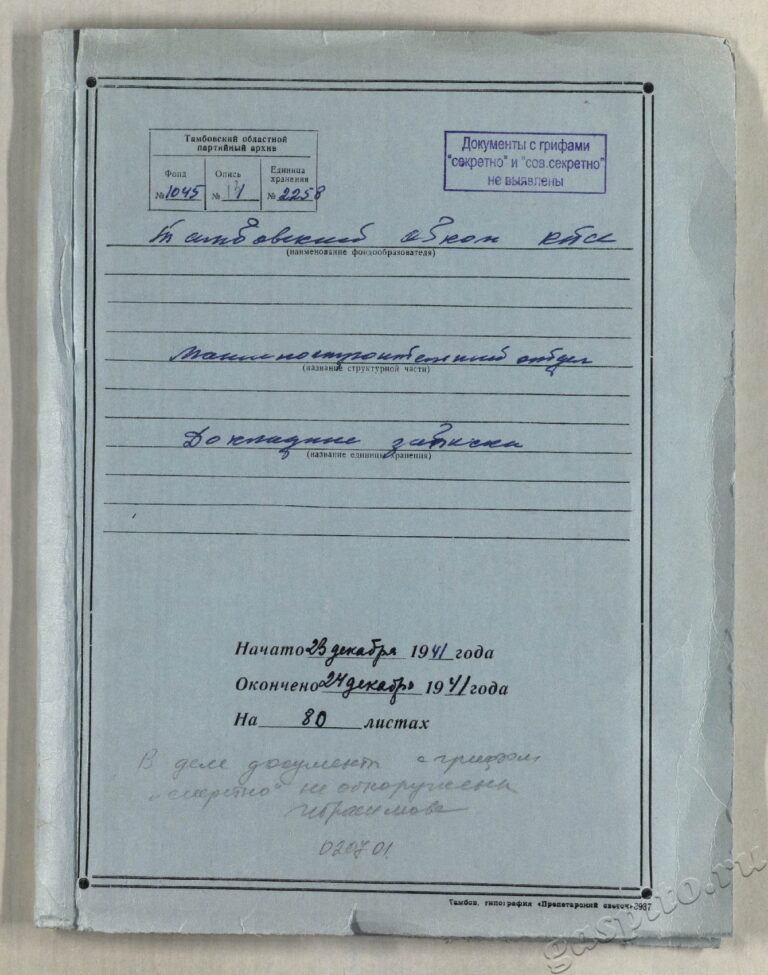 Тамбовский областной
партийный архив
Фонд Опись Единица хранения
№ 1045 № 1 № 2258
Документы с грифами
"секретно" и "сов.секретно"
не выявлены
Тамбовский обком КПСС
(наименование фондообразователя)
Машиностроительный отдел
(название структурной части)
Докладные записки
(название единицы хранения)
Начато 23 декабря 1941 года
Окончено 24 декабря 1941 года
На 80 листах
В деле документы с грифом
"секретно" не обнаружены
Ибрагимова
02.07.01.
Тамбов, типография «Пролетарский светоч» 3987
gaspito.ru